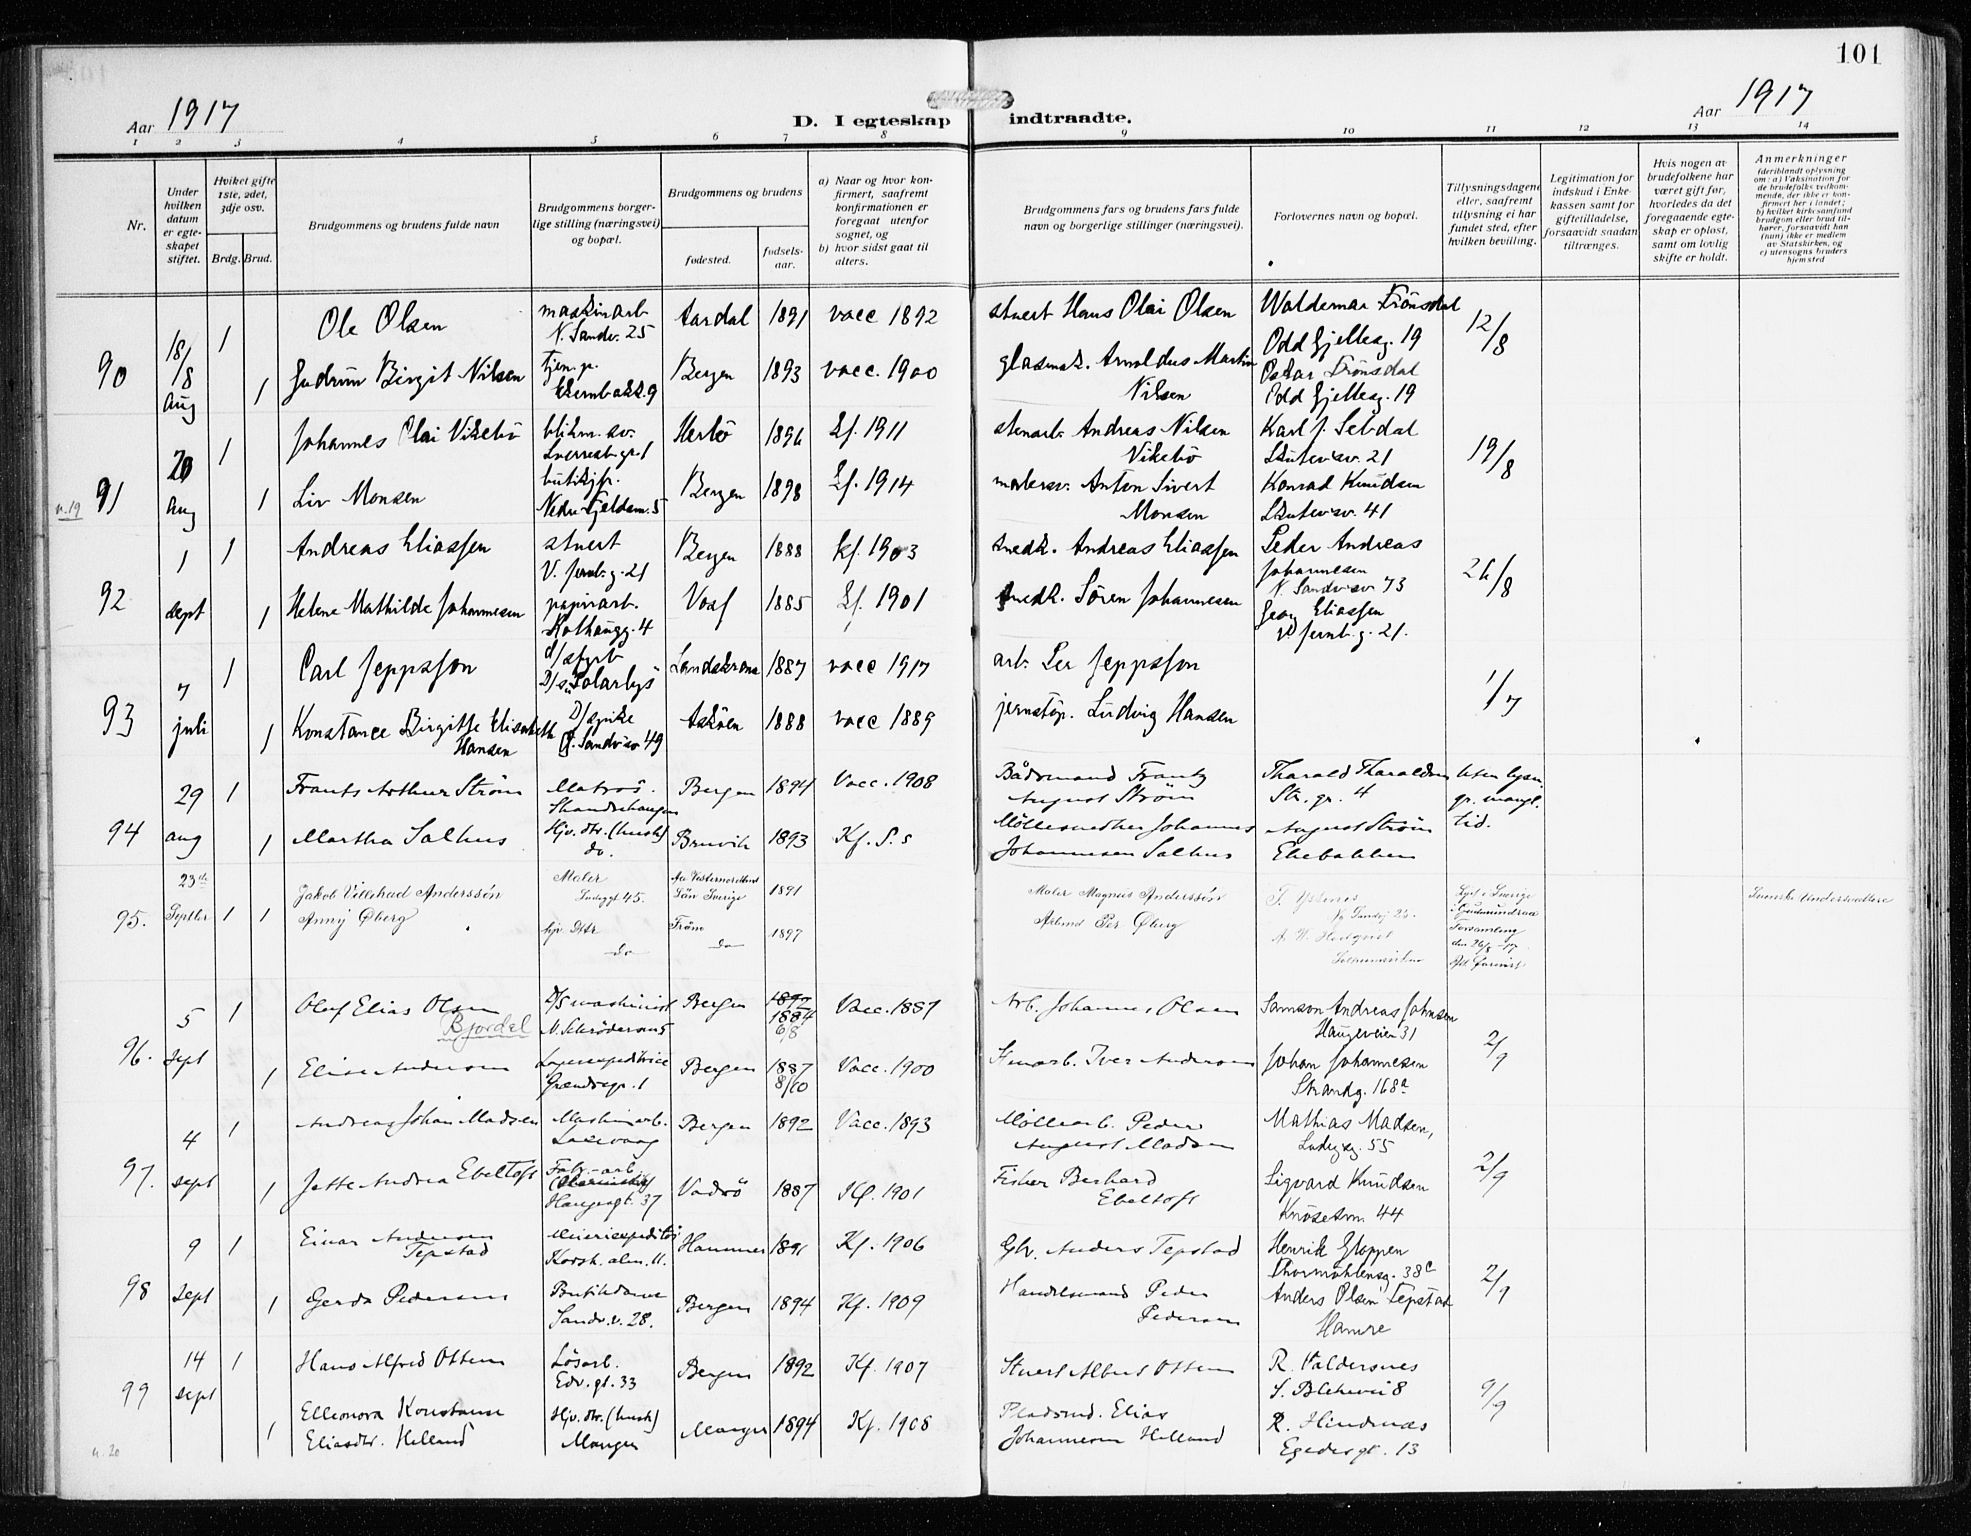 101
Aar 1917
D. I egteskap indtraadte.
Aar 1917
1 2 3 4 5 6 7 8 9 10 11 12 13 14
Nr.
Under hvilken datum er egteskapet stiftet.
Hviket gifte 1ste, 2det, 3dje osv.
Brdg. Brud.
Brudgommens og brudens fulde navn
Brudgommens borgerlige stilling (næringsvei) og bopæl.
Brudgommens og brudens
fødested.
fødselsaar.
a) Naar og hvor konfirmert, saafremt konfirmationen er foregaat utenfor sognet, og
b) hvor sidst gaat til alters.
Brudgommens fars og brudens fars fulde navn og borgerlige stillinger (næringsvei).
Forlovernes navn og bopæl.
Tillysningsdagene eller, saafremt tillysning ei har fundet sted, efter hvilken bevilling.
Legitimation for indskud i Enkekassen samt for giftetilladelse, forsaavidt saadan tiltrænges.
Hvis nogen av brudefolkene har været gift før, hvorledes da det foregaaende egteskap er opløst, samt om lovlig skifte er holdt.
Anmerkninger
(deriblandt oplysning om: a) Vaksination for de brudefolks vedkommende, der ikke er konfirmert her i landet;
b) hvilket kirkesamfund brudgom eller brud tilhører, forsaavidt han (hun) ikke er medlem av Statskirken, og
c) utensogns bruders hjemsted
90 18/8 Aug 1 Ole Olsen maskinarb N. Sandv. 25 Aardal 1891 vacc 1892 stuert Hans Olai Olsen Waldemar Trönsdal Odd Gjelles g. 19 12/8
1 Gudrun Birgit Nilsen Tjen.p. 9 Bergen 1893 vacc. 1900 glasmak. Arnoldus Martin Nilsen Oskar Trönsdal Odd Gjelles g. 19
91 20 Aug 1 Johannes Olai Vikebö blikm. sv. 1 Herlö 1896 kf. 1911 stenarb. Andreas Nilsen Vikebö Karl J. Seldal Skutevsv. 21 19/8
n. 19 1 Liv Monsen butikjfr. Nedre Fjeldsm. 5 Bergen 1898 kf. 1914 malersv. Anton Sivert Monsen Konrad Knudsen Skutevsv. 41
92 1 sept 1 Andreas Eliassen stuert V. Jernb. g. 21 Bergen 1888 kf. 1903 snedk. Andreas Eliassen Peder Andreas Johannesen N. Sandvsv 73 26/8
1 Helene Mathilde Johannesen papirarb. Kothaugg. 4 Voss 1885 kf. 1901 snedk. Sören Johannesen Georg Eliassen V. Jernb. g. 21.
93 7 juli 1 Carl Jeppsson d/s fyrb D/s "Polarlys" Landskrona 1887 vacc 1917 arb. Per Jeppsson 1/7
1 Konstance Birgitte Elisabeth Hansen D/s pike N. Sandvsv 49 Asköen 1888 vacc 1889 jernstöp. Ludvig Hansen
94 29 aug 1 Frants Arthur Ström Matros. Strandehaugen Bergen 1894 Vacc. 1908 Bådsmand Frantz August Ström Tharald Tharaldsen Str. gr. 4 Uten lysn. gr. mangl. tid.
1 Martha Salhus Hjv. dtr. (hush) do. Bruvik 1893 Kf. S. s Möllesvedker Johannes Johannesen Salhus August Ström Ekebakken
95. 23de Septbr 1 1 Jakob Villehad Anderssön Maler Ladegt 45. Län Sverige 1891 Maler Magnus Anderssön T. Ystenes N. Sandvj 26. Lyst i Sverige i Gudmundraa Forsamling den 26/8 -17 Svenske Undersaatter
Anny Øberg hjv. Dtr do Fröm do 1897 Per Øberg
96. 5 Sept 1 Oluf Elias Olsen Bjordal D/s maskinist N. Schröderom 5 Bergen 1892 1884 6/8 Vacc. 1887 Arb. Johannes Olsen Samson Andreas Johnsen Haugeveien 31 2/9
1 Elise Andersen Lagerexpeditrice 1 Bergen 1887 8/10 Vacc. 1900 Stenarb. Iver Andersen Johan Johannesen Strandg. 168a
97. 4 sept 1 Andreas Johan Madsen Maskinarb. Laxevaag Bergen 1892 Vacc. 1893 Möllearb. Peder August Madsen Mathias Madsen, Ladegsg. 55 2/9
1 Jette Andrea Ebeltoft Fabr.-arb. Haugegt. 37 Vadsö 1887 Kf. 1901 Fisker Berhard Ebeltoft Sigvard Knudsen Knösesm. 44
98 9 sept 1 Einar Andersen Tepstad Meieriexpeditör Korsk. alm. 11. Hammer 1891 Kf. 1906 Gbr. Anders Tepstad Henrik Gloppen Thormöhlensg. 38c 2/9
1 Gerda Pedersen Butikdame Sandv. v. 28. Bergen 1894 Kf. 1909 Handelsmand Peder Pedersen Anders Olsen Tepstad Hamre
99 14 sept 1 Hans Alfred Ottesen Lösarb. Edv. gt. 33 Bergen 1892 Kf. 1907 Stuert Albert Ottesen R. Valdersnes S. Blekevei 8 9/9
n. 20 1 Elleonora Konstanse Eliasdtr. Helland Hjv. dtr. (hush) Manger Manger 1894 Kf. 1908 Pladsmd. Elias Johannesen Helland R. Hindenæs Egedesgt. 13